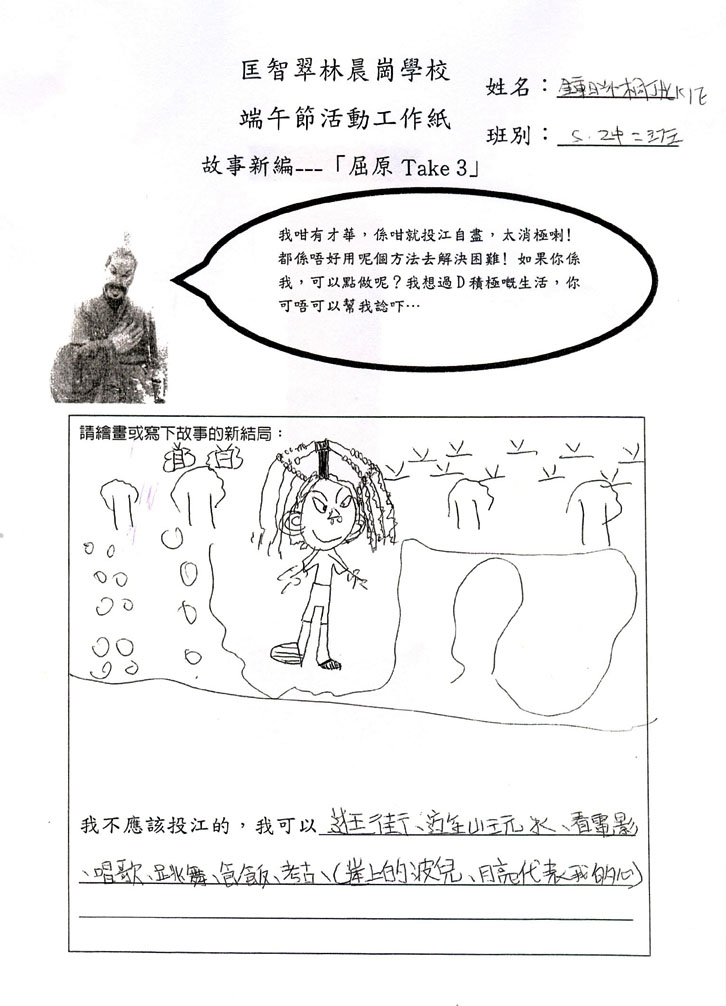 匡智翠林晨崗學校
姓名：
端午節活動工作紙
班別：S.2中二班
故事新編---「屈原 Take 3」
我咁有才華，係咁就投江自盡，太消極喇!
都係唔好用呢個方法去解決困難! 如果你係
我，可以點做呢？我想過D積極嘅生活，你
可唔可以幫我諗吓…
請繪畫或寫下故事的新結局：
我不應該投江的，我可以 街、玩水、看電影
、唱歌、跳舞、食飯、考古、(岸上的波兒、月亮代表我的心)